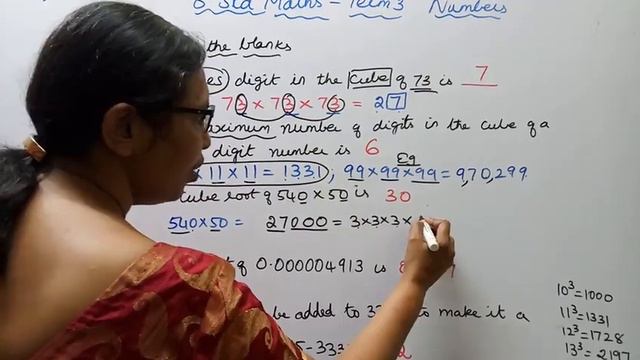 8 Std Maths - Term 3 Numbers
the blanks
digit in the cube of 73 is 7
73 × 73 × 73 = 27
maximum number of digits in the cube of a
digit number is 6
Eg
× 11 × 11 = 1331 ; 99 × 99 × 99 = 9,70,299
cube root of 540 × 50 is 30
540 × 50 = 27000 = 3 × 3 × 3 ×
of 0.000004913 is
be added to 33 to make it a
10³ = 1000
11³ = 1331
12³ = 1728
13³ = 2197